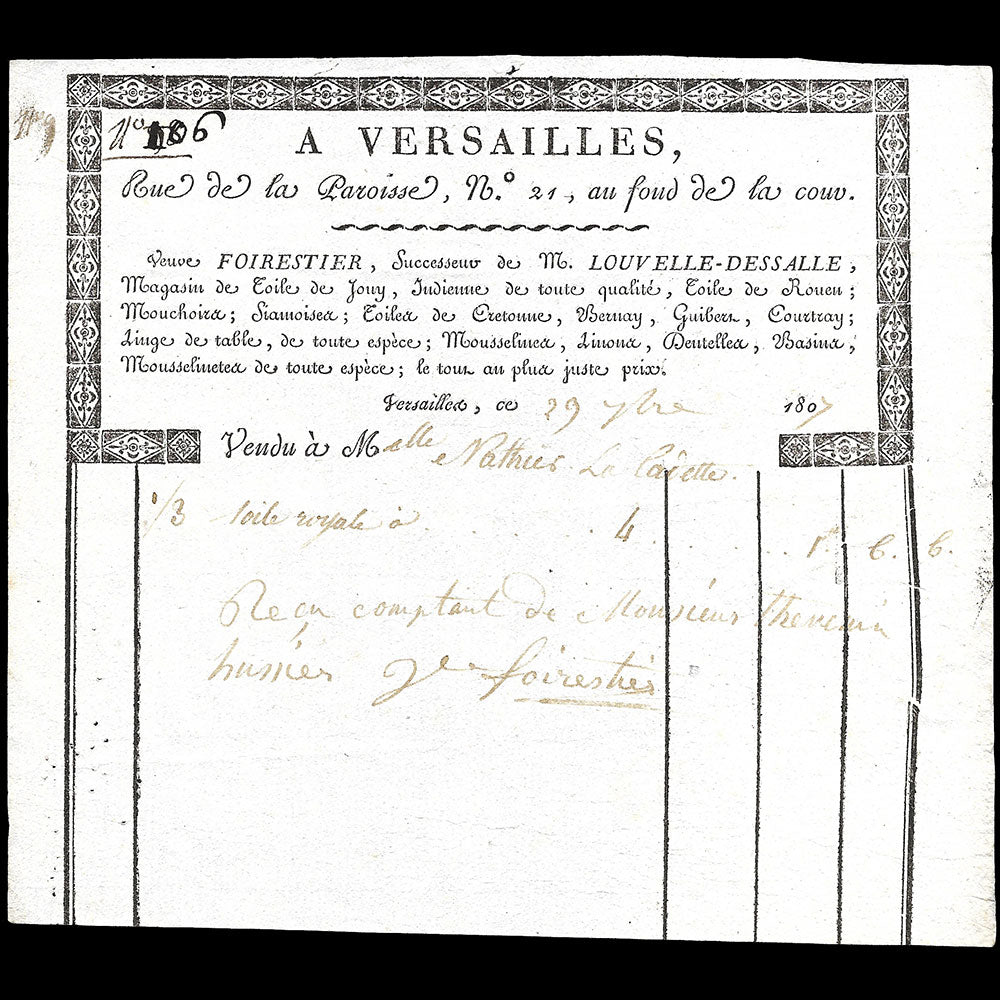 N° 186
A VERSAILLES,
Rue de la Paroisse, N.° 21, au fond de la cour.
Veuve FOIRESTIER, Successeur de M. LOUVELLE-DESSALLE,
Magasin de Toile de Jouy, Indienne de toute qualité, Toile de Rouen;
Mouchoirs; Siamoises; Toiles de Cretonne, Bernay, Guibert, Courtray;
Linge de table, de toute espèce; Mousselines, Linons, Dentelles, Basins,
Mousselinetes de toute espèce; le tout au plus juste prix.
Versailles, ce 29 7bre 1807
Vendu à Melle Nathier La
1/3 toile royale à 4 1 6. 6.
Reçu comptant de Monsieur thevenin
hussier Ve foirestier